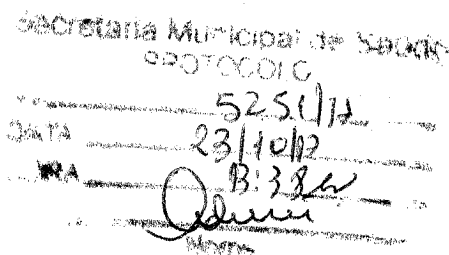 Secretaria Municipal de Saúde
PROTOCOLO
5251/12
DATA 23/10/12
HORA 13:38
Nome